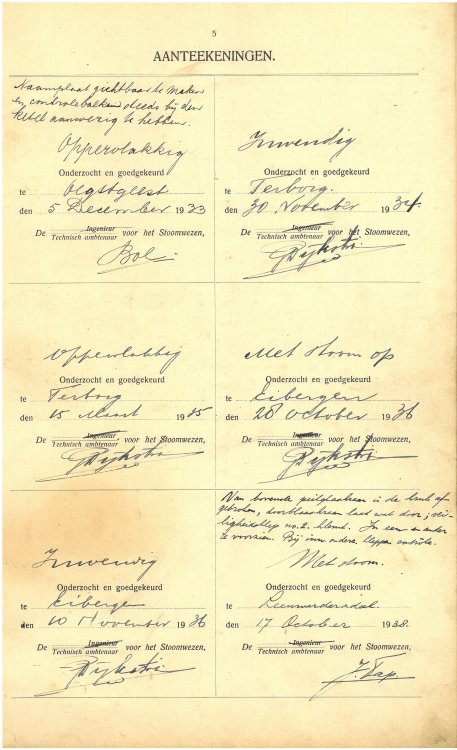 5
AANTEEKENINGEN.
Naamplaat zichtbaar te maken
en controlebalken steeds bij den
ketel aanwezig te hebben.
Oppervlakkig
Onderzocht en goedgekeurd
te Oegstgeest
den 5 December 1933
De Ingenieur
Technisch ambtenaar voor het Stoomwezen,
Bol
Inwendig
Onderzocht en goedgekeurd
te Terborg.
den 30 November 1934.
De Ingenieur
Technisch ambtenaar voor het Stoomwezen,
Dijkstra
Oppervlakkig
Onderzocht en goedgekeurd
te Terborg
den 15 Maart 1935
De Ingenieur
Technisch ambtenaar voor het Stoomwezen,
Dijkstra
Met stoom op
Onderzocht en goedgekeurd
te Eibergen
den 28 October 1936
De Ingenieur
Technisch ambtenaar voor het Stoomwezen,
Dijkstra
Inwendig
Onderzocht en goedgekeurd
te Eibergen
den 10 November 1936
De Ingenieur
Technisch ambtenaar voor het Stoomwezen,
Dijkstra
Van bovenste peilglaskraan is de kruk af-
gebroken, doorblaaskraan laat wat door; vei-
ligheidsklep no. 2. klemt. In een en ander
te voorzien. Bij inw. onderz. kleppen controle.
Met stoom.
Onderzocht en goedgekeurd
te Leeuwarderadeel
den 17 October 1938.
De Ingenieur
Technisch ambtenaar voor het Stoomwezen,
J. Tap